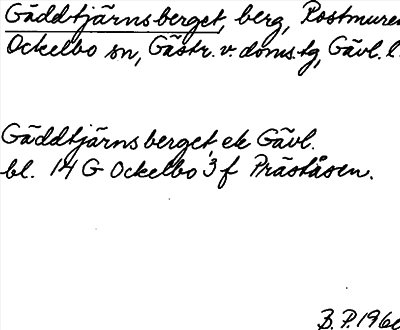 Gäddtjärnsberget, berg, Rostmuren
Ockelbo sn, Gästr. v. doms.tg, Gävl. l.
Gäddtjärnsberget ek Gävl.
bl. 14 G Ockelbo 3 f Präståsen.
B. P. 196